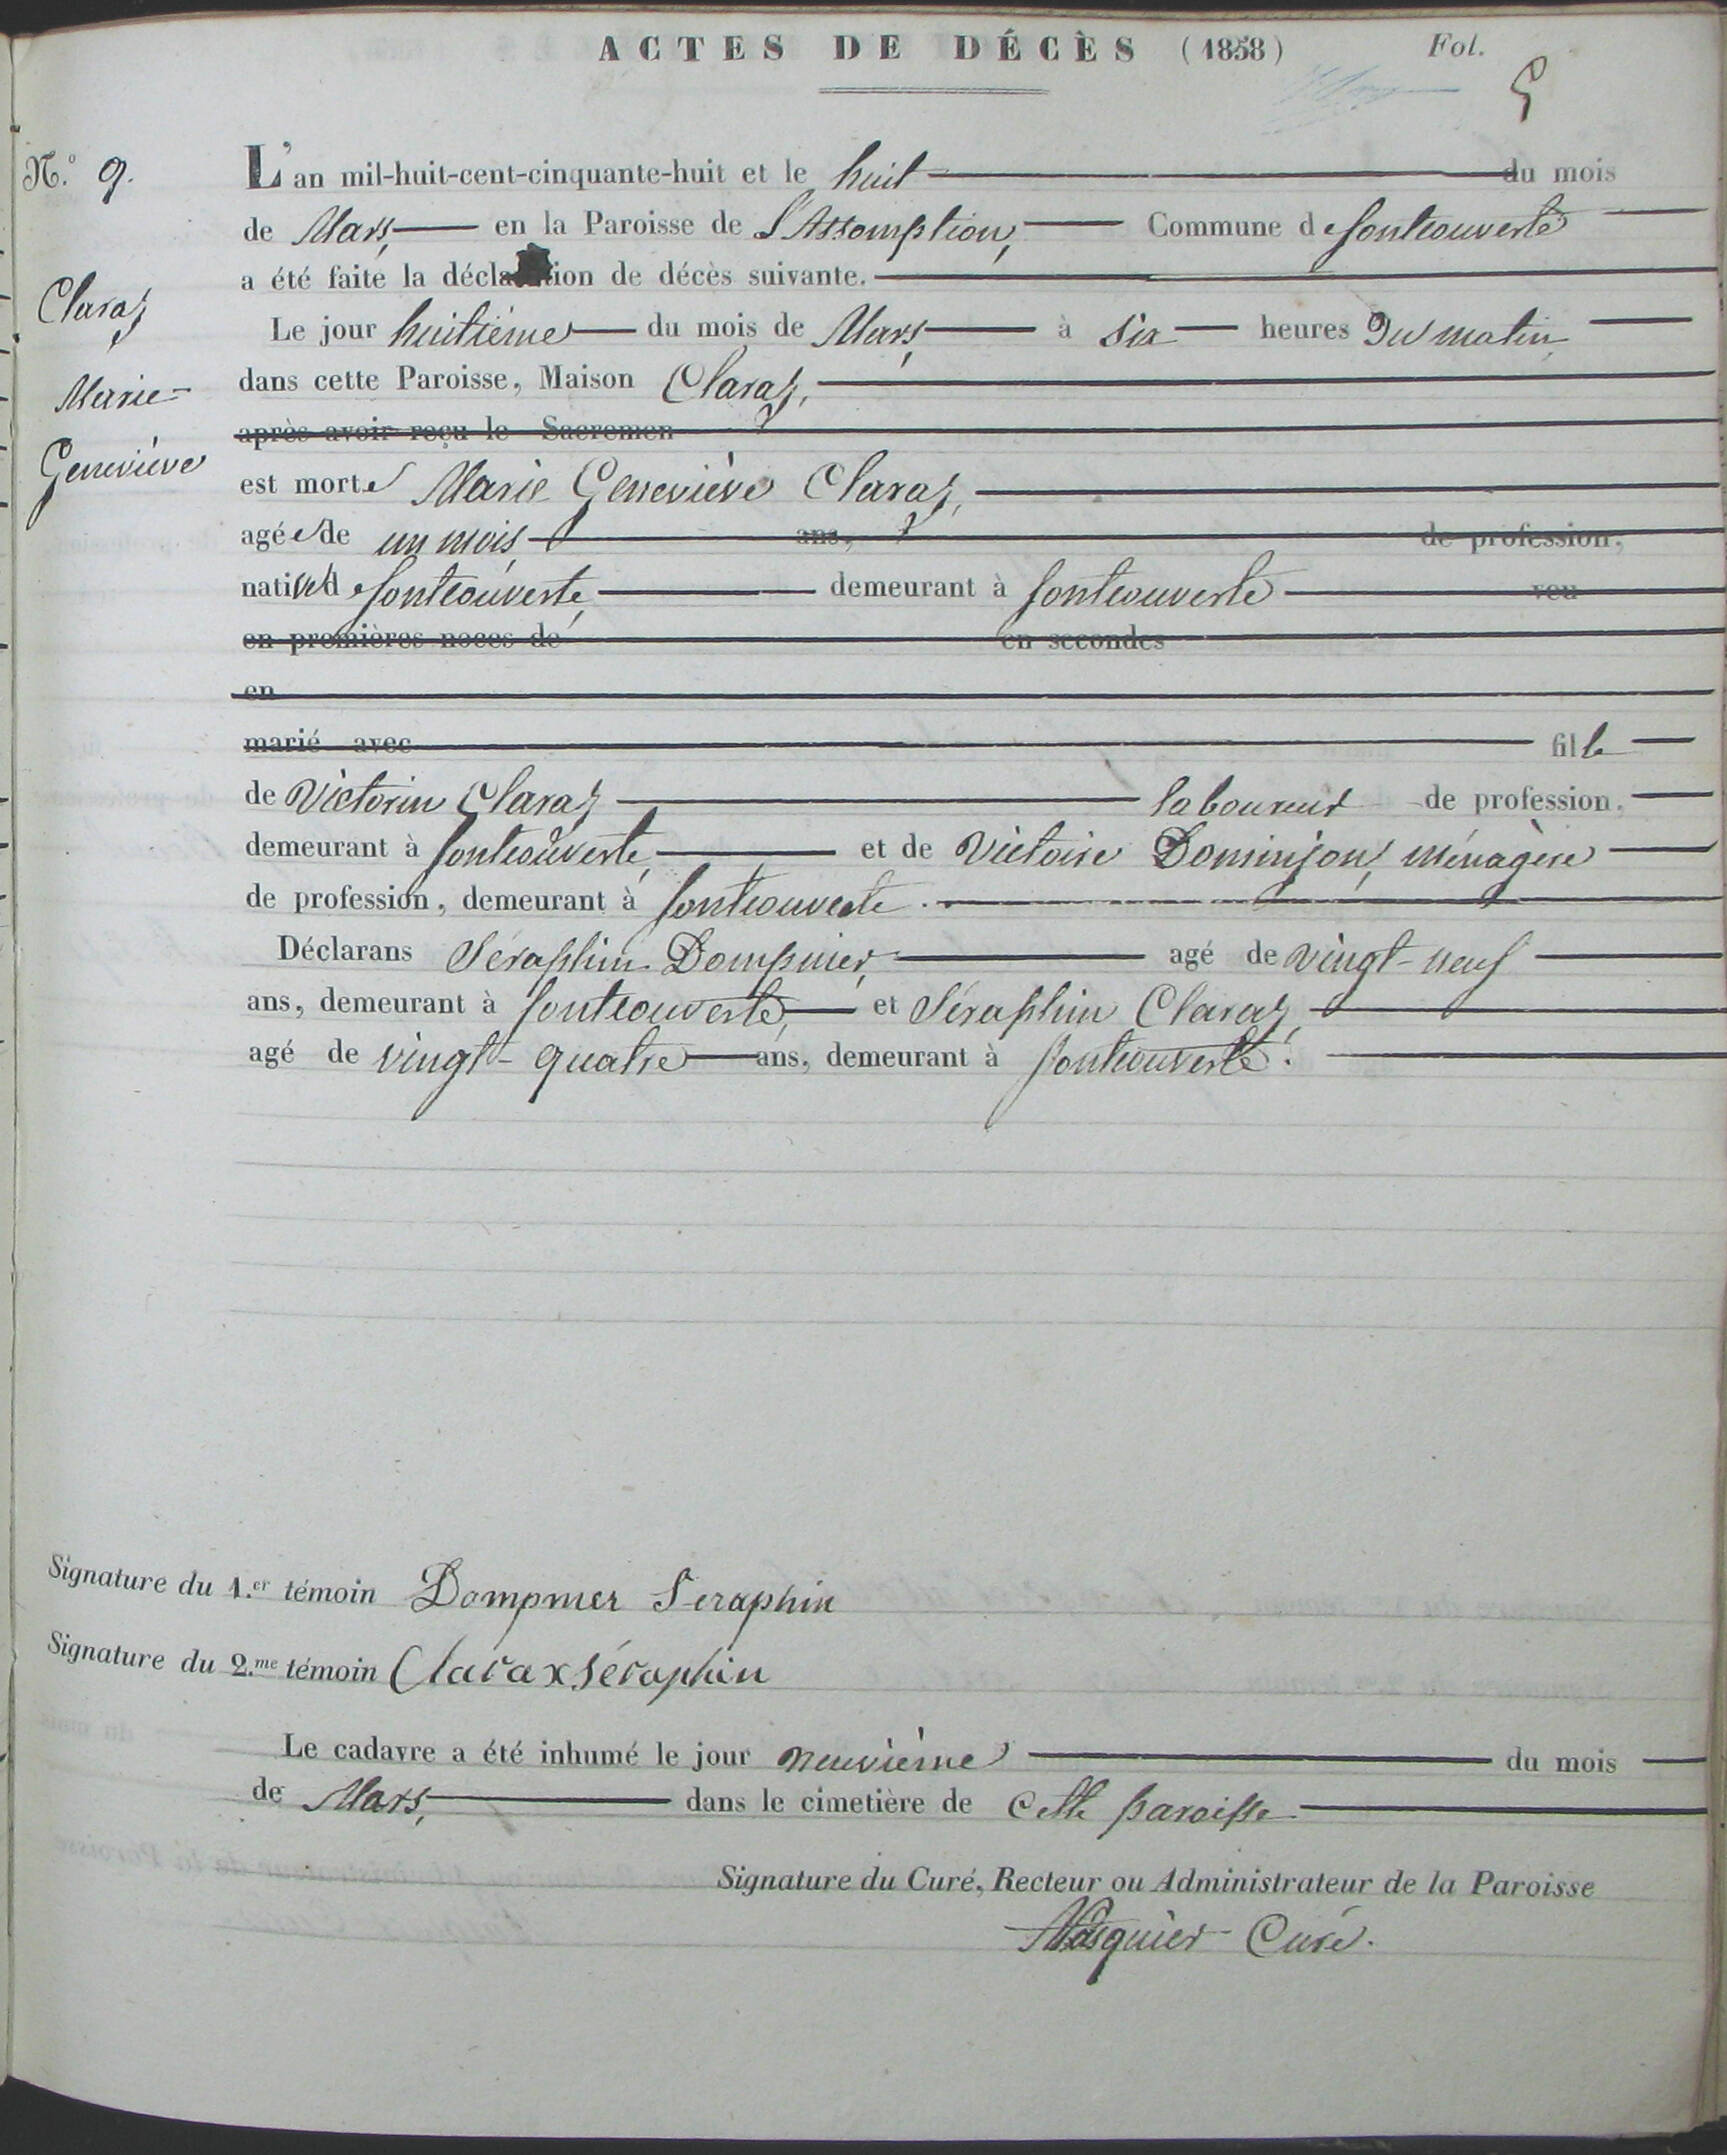 ACTES DE DÉCÈS (1858) Fol. 5
N.º 9. L'an mil-huit-cent-cinquante-huit et le huit du mois
de Mars, en la Paroisse de L'Assomption, Commune de fontcouverte
a été faite la déclaration de décès suivante.
Claraz
Le jour huitième du mois de Mars, à six heures du matin
Marie-
dans cette Paroisse, Maison Claraz,
après avoir reçu le Sacremen
Geneviève
est morte Marie Geneviève Claraz,
agée de un mois ans, de profession,
native de fontcouverte, demeurant à fontcouverte veu
en premières noces de en secondes
en
marié avec fille
de Victorin Claraz laboureur de profession,
demeurant à fontcouverte, et de Victoire Dominjon, ménagère
de profession, demeurant à fontcouverte.
Déclarans Séraphin Dompnier, agé de vingt-neuf
ans, demeurant à fontcouverte, et Séraphin Claraz,
agé de vingt-quatre ans, demeurant à fontcouverte.
Signature du 1.er témoin Dompnier Seraphin
Signature du 2.me témoin Clarax séraphin
Le cadavre a été inhumé le jour neuvième du mois
de Mars, dans le cimetière de cette paroisse
Signature du Curé, Recteur ou Administrateur de la Paroisse
Curé.